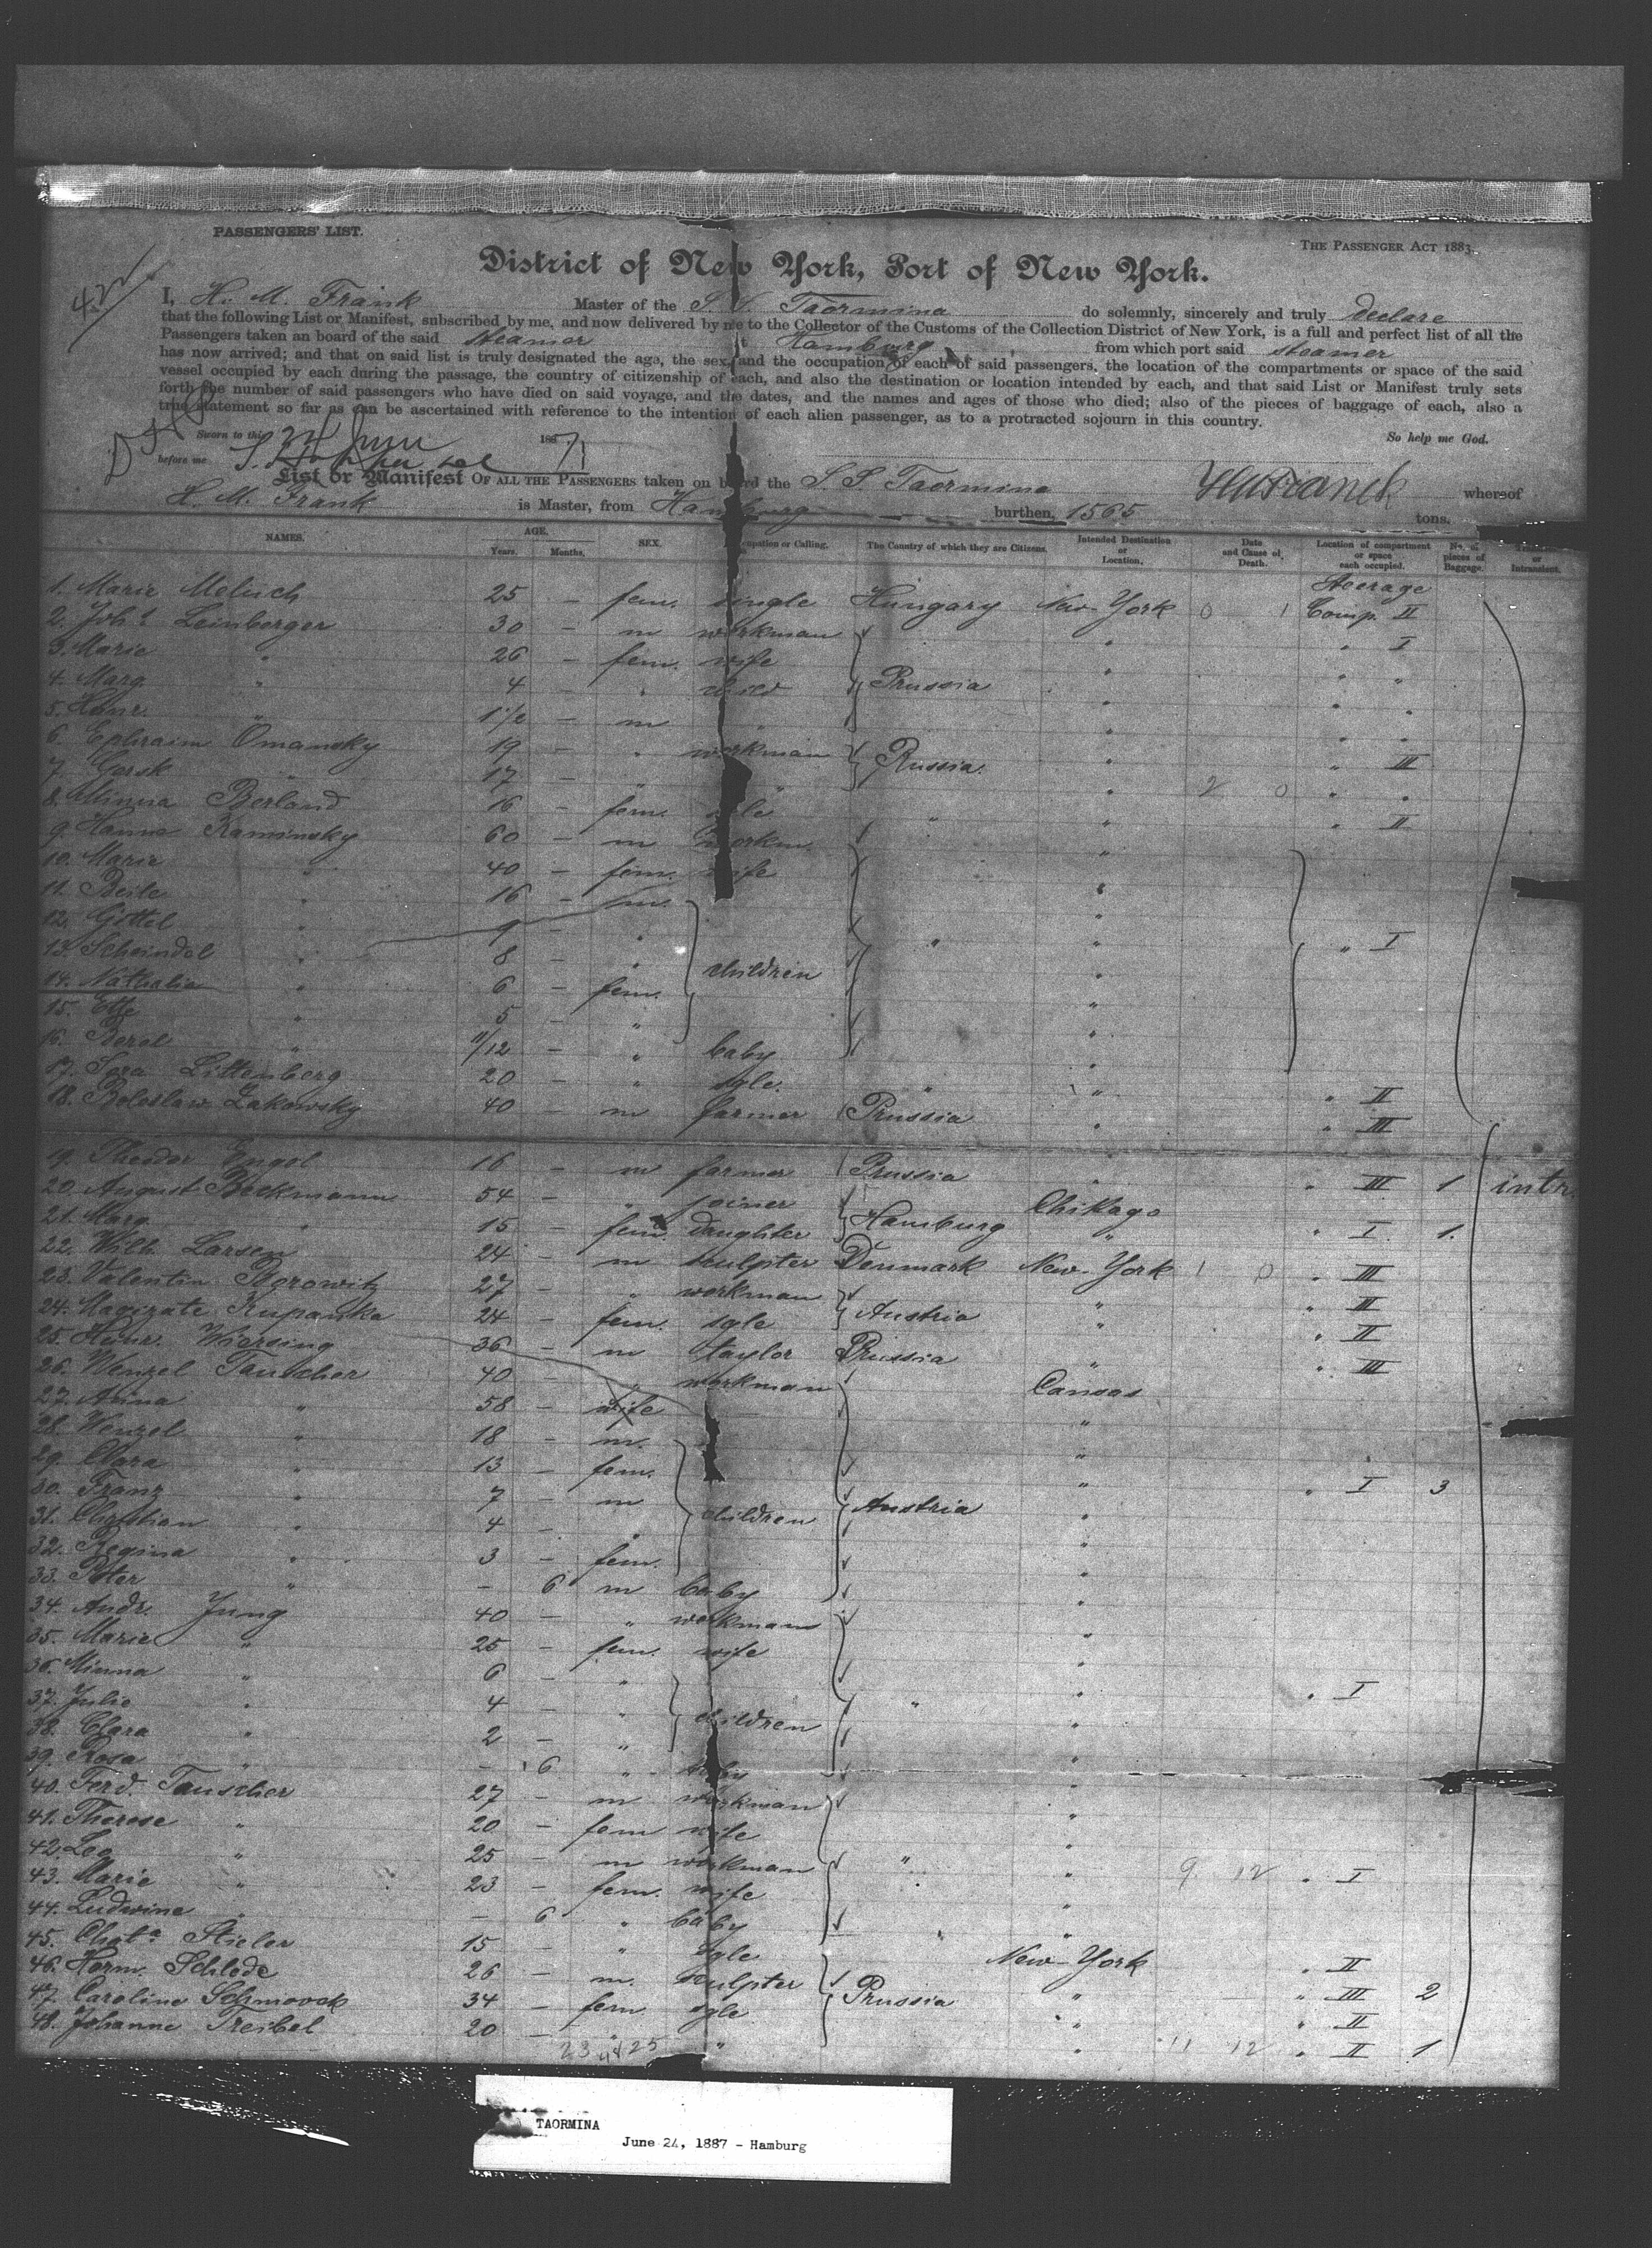 PASSENGERS' LIST.
THE PASSENGER ACT 1883.
District of New York, Port of New York.
I, H. M. Frank Master of the S. S. Taormina do solemnly, sincerely and truly declare
that the following List or Manifest, subscribed by me, and now delivered by me to the Collector of the Customs of the Collection District of New York, is a full and perfect list of all the
Passengers taken an board of the said steamer at Hamburg from which port said steamer
has now arrived; and that on said list is truly designated the age, the sex, and the occupation of each of said passengers, the location of the compartments or space of the said
vessel occupied by each during the passage, the country of citizenship of each, and also the destination or location intended by each, and that said List or Manifest truly sets
forth the number of said passengers who have died on said voyage, and the dates, and the names and ages of those who died; also of the pieces of baggage of each, also a
true statement so far as can be ascertained with reference to the intention of each alien passenger, as to a protracted sojourn in this country.
Sworn to this 24 June 1887 So help me God.
before me
List or Manifest OF ALL THE PASSENGERS taken on board the S. S. Taormina whereof
H. M. Frank is Master, from Hamburg burthen, 1565 tons.
NAMES. AGE. Years. Months. SEX. Occupation or Calling. The Country of which they are Citizens. Intended Destination or Location. Date and Cause of Death. Location of compartment or space each occupied. No. of pieces of Baggage.
Steerage
1. Marie Meluch 25 — fem. single Hungary New-York 0 1 Comp. II
2. Joh. Leinberger 30 — m workman " " I
3. Marie " 26 — fem. wife " " "
4. Marg. " 4 — " child Prussia " " "
5. Heinr. " 1 1/2 — m " " " "
6. Ephraim Omansky 19 — " workman Russia " " III
7. Gersk " 17 — " " " 2 0 " "
8. Minna Berland 16 — fem. sgle " " " II
9. Hanne Kaminsky 60 — m workm. "
10. Marie " 40 — fem. wife "
11. Beile " 16 — fem. "
12. Gittel " 9 — " " " " I
13. Scheindel " 8 — " children "
14. Nathalia " 6 — fem. "
15. Ette " 5 — " "
16. Berel " 11/12 — " baby "
17. Sora Littenberg 20 — " sgle. " " " II
18. Boleslaw Zakowsky 40 — m farmer Prussia " " III
19. Theodor Engel 16 — m farmer Prussia " " III 1 intr.
20. August Beckmann 54 — " joiner Chikago
21. Marg. " 15 — fem. daughter Hamburg " " I 1.
22. Wilh. Larsen 24 — m sculpter Denmark New-York 1 0 " III
23. Valentin Borowitz 27 — " workman " " III
24. Magizate Kupanka 24 — fem. sgle Austria " " II
25. Heinr. Wiersing 36 — m taylor Prussia " " III
26. Wenzel Tauscher 40 — " workman Cansas
27. Anna " 58 — wife "
28. Wenzel " 18 — m. "
29. Clara " 13 — fem. " " I 3
30. Franz " 7 — m children Austria "
31. Christian " 4 — " "
32. Regina " 3 — fem. "
33. Peter " — 6 m baby "
34. Andr. Jung 40 — " workman "
35. Marie " 25 — fem. wife "
36. Minna " 6 — " " " I
37. Julie " 4 — " children " "
38. Clara " 2 — " "
39. Rosa " — 6 " baby "
40. Ferd. Tauscher 27 — m workman "
41. Therese " 20 — fem wife "
42. Leo " 25 — m workman " " 9 12 " I
43. Marie " 23 — fem. wife "
44. Ludwine " — 6 " baby "
45. Chat. Stieler 15 — " sgle " New-York " II
46. Herm. Schlode 26 — m. sculpter Prussia " " III 2
47. Caroline Schmoock 34 — fem. sgle " " II
48. Johanne Treibel 20 — " " " 11 12 " II 1
23 48 25
TAORMINA
June 24, 1887 - Hamburg